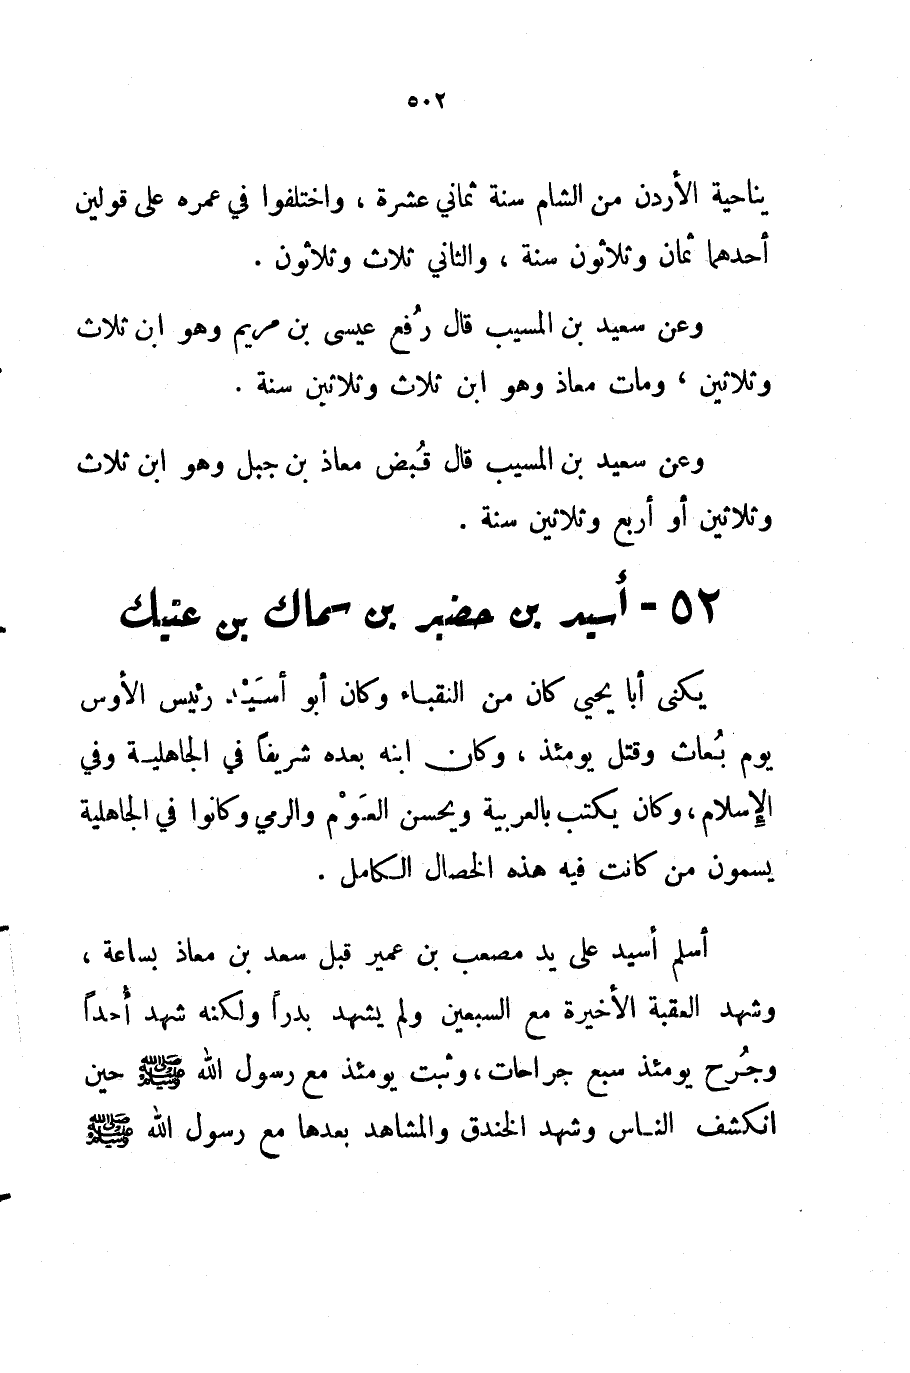 ٥٠٢
بناحية الأردن من الشام سنة ثماني عشرة ، واختلفوا في عمره على قولين
أحدهما ثمان وثلاثون سنة ، والثاني ثلاث وثلاثون .
وعن سعيد بن المسيب قال رُفع عيسى بن مريم وهو ابن ثلاث
وثلاثين ، ومات معاذ وهو ابن ثلاث وثلاثين سنة .
وعن سعيد بن المسيب قال قُبض معاذ بن جبل وهو ابن ثلاث
وثلاثين أو أربع وثلاثين سنة .
٥٢ - أُسيد بن حضير بن سماك بن عتيك
يكنى أبا يحيى كان من النقباء وكان أبو أسَيْد رئيس الأوس
يوم بُعاث وقتل يومئذ ، وكان ابنه بعده شريفاً في الجاهلية وفي
الإسلام، وكان يكتب بالعربية ويحسن العَوْم والرمي وكانوا في الجاهلية
يسمون من كانت فيه هذه الخصال الكامل .
أسلم أسيد على يد مصعب بن عمير قبل سعد بن معاذ بساعة ،
وشهد العقبة الأخيرة مع السبعين ولم يشهد بدراً ولكنه شهد أُحداً
وجُرح يومئذ سبع جراحات، وثبت يومئذ مع رسول الله ﷺ حين
انكشف الناس وشهد الخندق والمشاهد بعدها مع رسول الله ﷺ